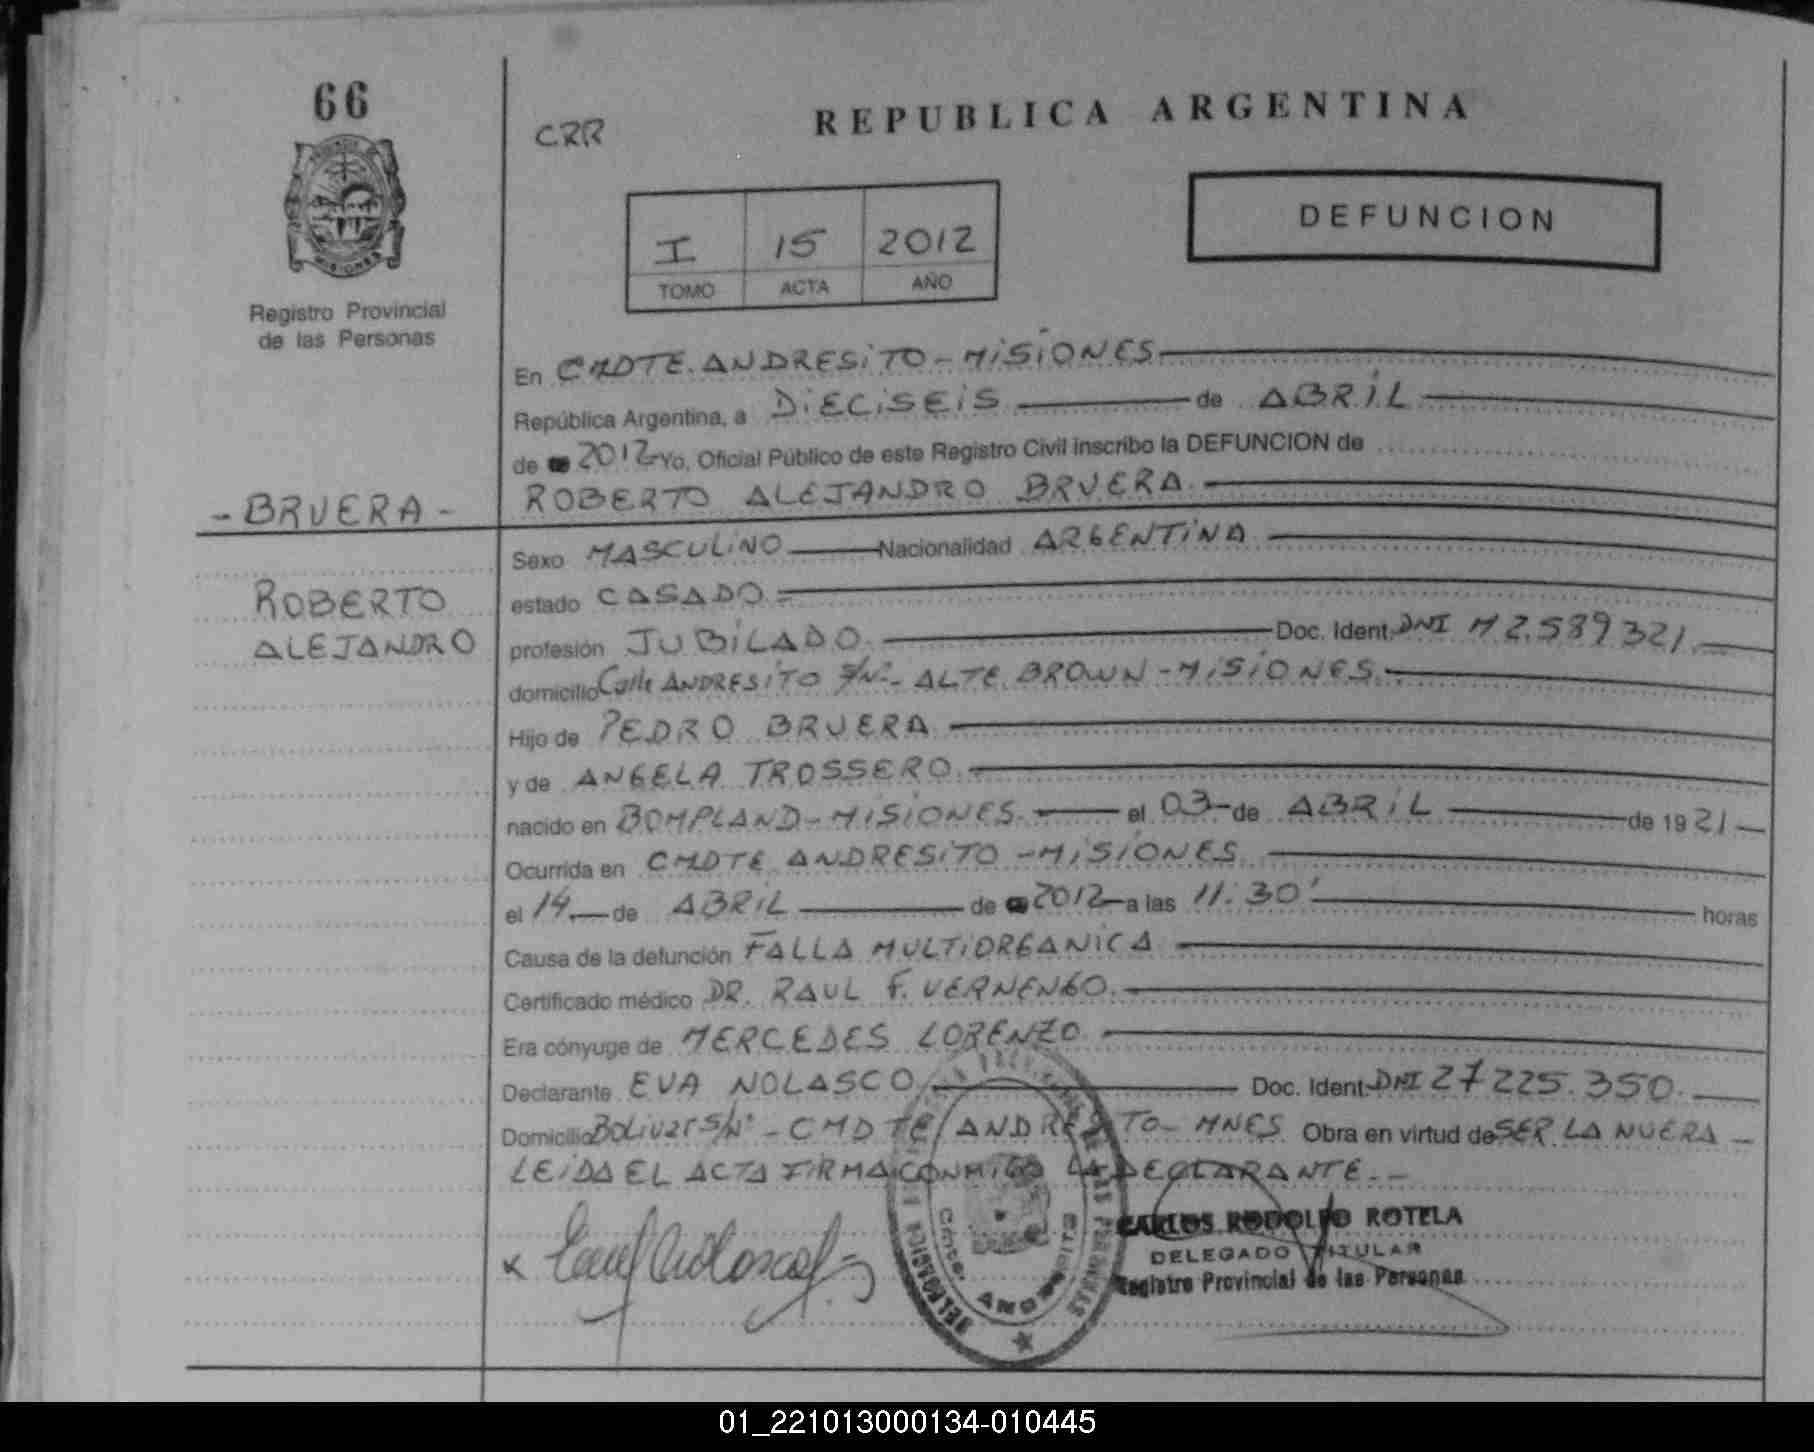 66
CRR
REPUBLICA ARGENTINA
DEFUNCION
I 15 2012
TOMO ACTA AÑO
MISIONES
Registro Provincial
de las Personas
En CMDTE. ANDRESITO - MISIONES
República Argentina, a DIECISEIS de ABRIL
de 2012 Yo, Oficial Público de este Registro Civil inscribo la DEFUNCION de
- BRUERA -
ROBERTO ALEJANDRO BRUERA
Sexo MASCULINO Nacionalidad ARGENTINA
ROBERTO
estado CASADO
ALEJANDRO
profesión JUBILADO Doc. Ident. DNI M 2.589321
domicilio Calle ANDRESITO S/Nº - ALTE. BROWN - MISIONES
Hijo de PEDRO BRUERA
y de ANGELA TROSSERO
nacido en BOMPLAND - MISIONES el 03 de ABRIL de 1921
Ocurrida en CMDTE ANDRESITO - MISIONES
el 14 de ABRIL de 2012 a las 11:30' horas
Causa de la defunción FALLA MULTIORGANICA
Certificado médico DR. RAUL F. VERNENGO
Era cónyuge de MERCEDES LORENZO
Declarante EVA NOLASCO Doc. Ident. DNI 27225.350
Domicilio Bolivar S/Nº - CMDTE ANDRESITO - MNES Obra en virtud de SER LA NUERA -
LEIDA EL ACTA FIRMA CONMIGO LA DECLARANTE. -
CARLOS RODOLFO ROTELA
DELEGADO TITULAR
Registro Provincial de las Personas
01_221013000134-010445